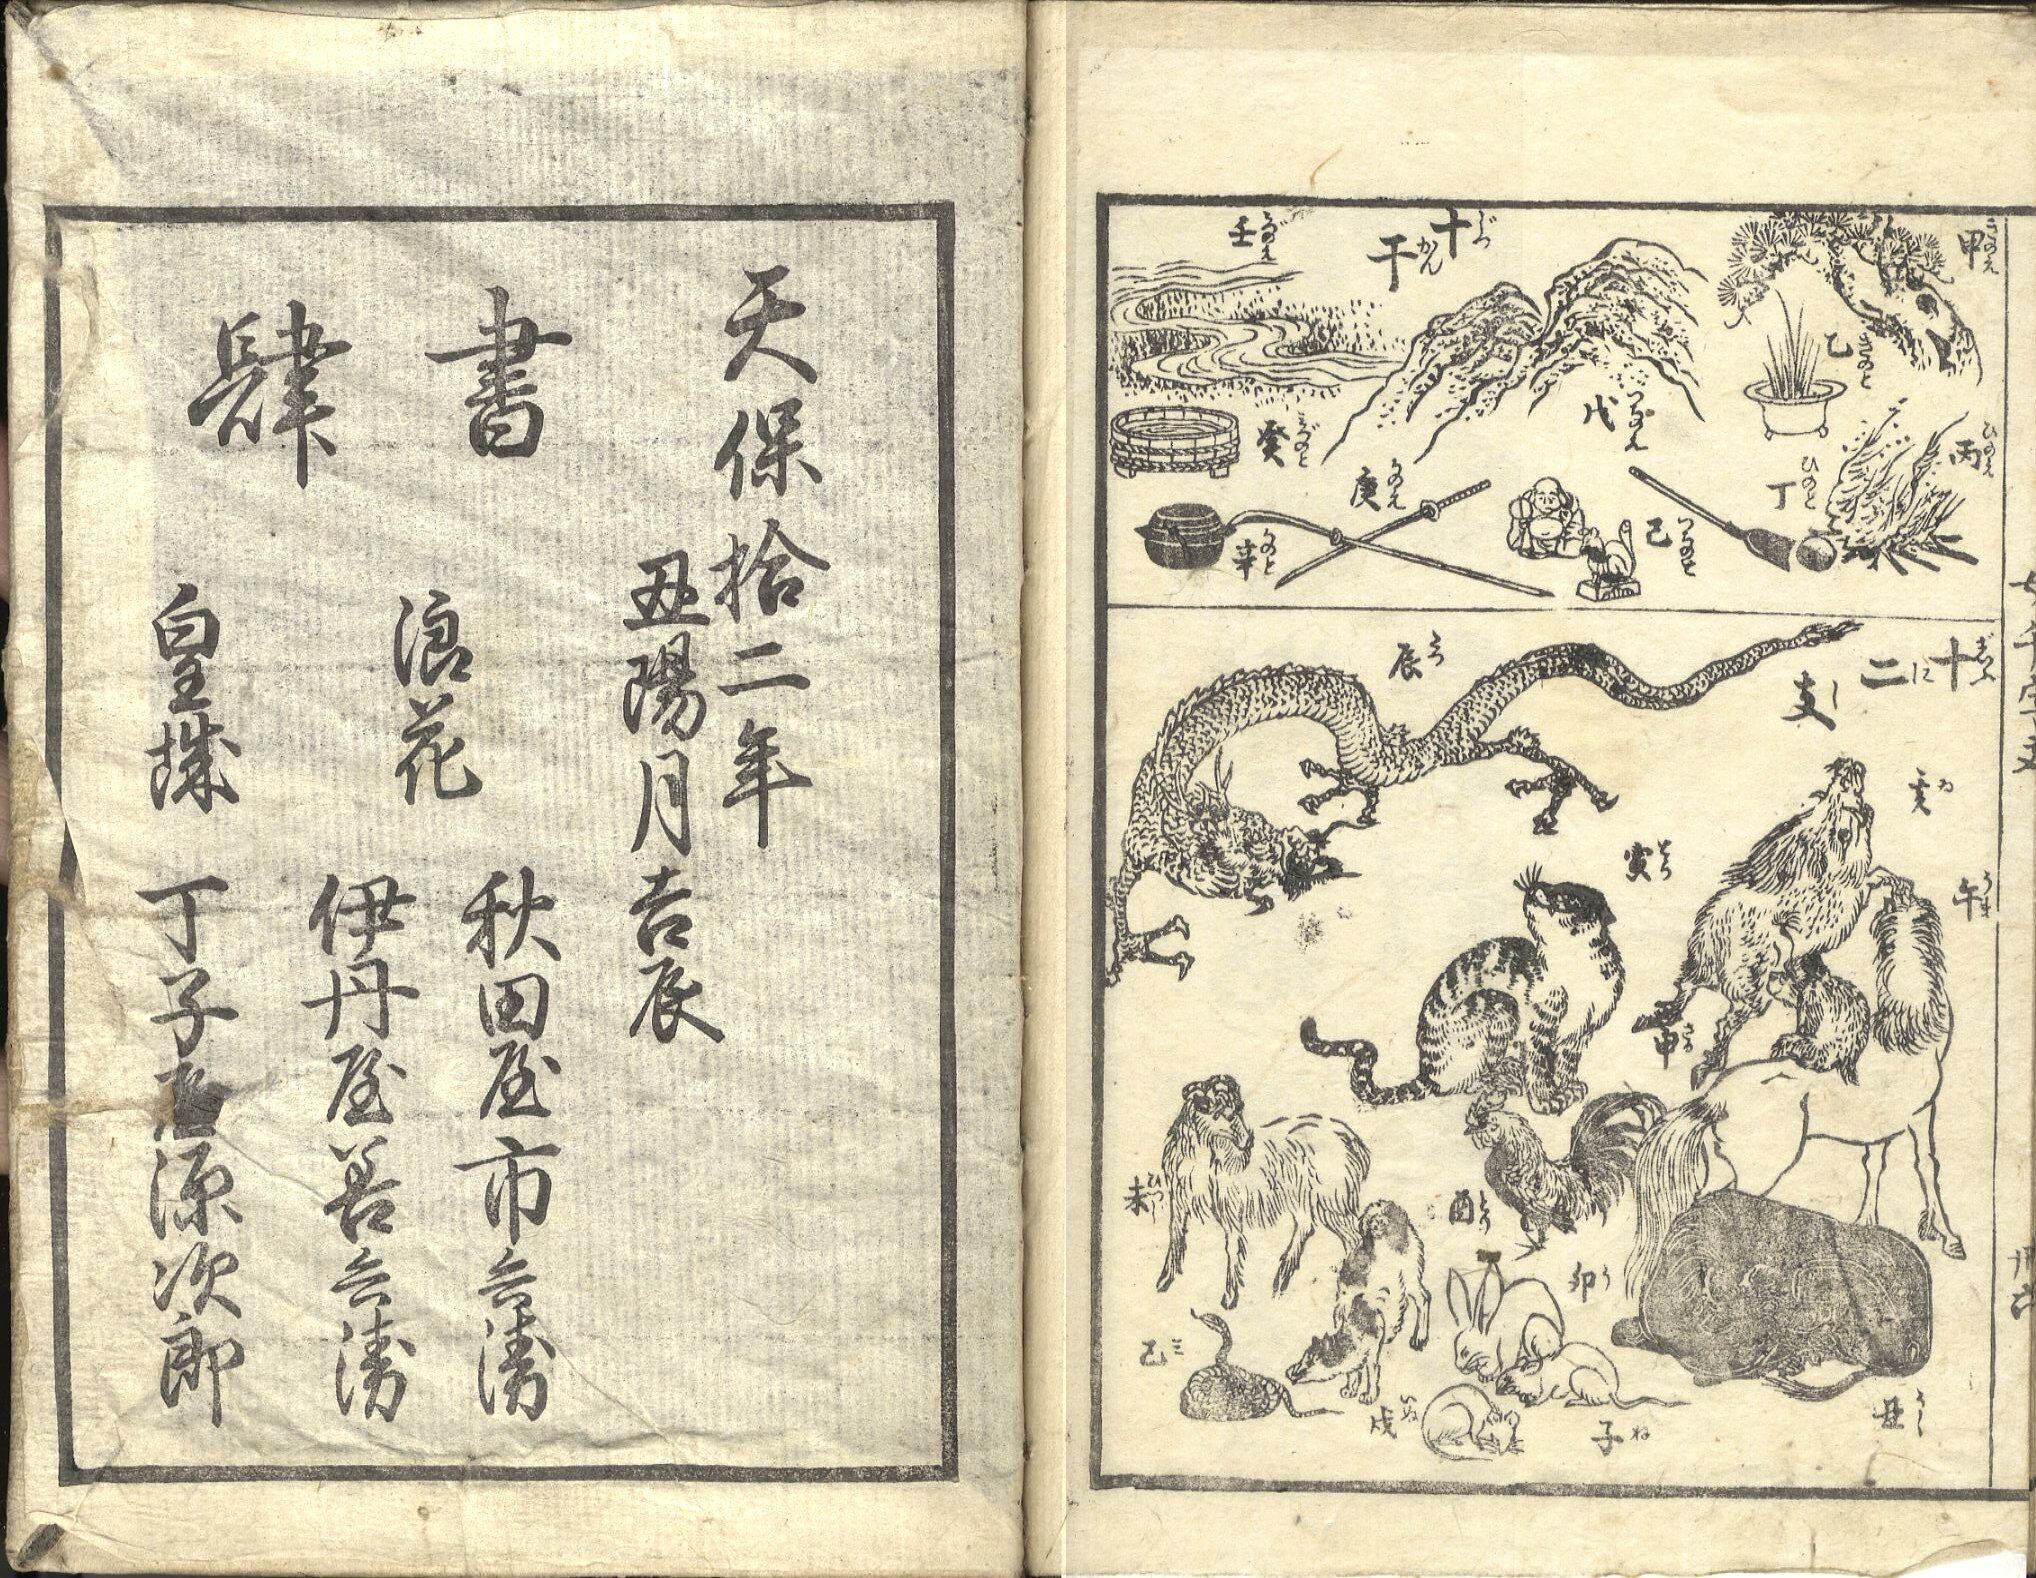 十干
じつかん
甲
きのえ
乙
きのと
丙
ひのえ
丁
ひのと
戊
つちのえ
己
つちのと
庚
かのえ
辛
かのと
壬
みづのえ
癸
みづのと
十二支
じふにし
辰
たつ
亥
ゐ
寅
とら
午
うま
申
さる
未
ひつじ
酉
とり
卯
う
巳
ミ
戌
いぬ
子
ね
丑
うし
天保拾二年
丑陽月吉辰
書肆
浪花
秋田屋市兵衛
伊丹屋善兵衛
皇城
丁子屋源次郎